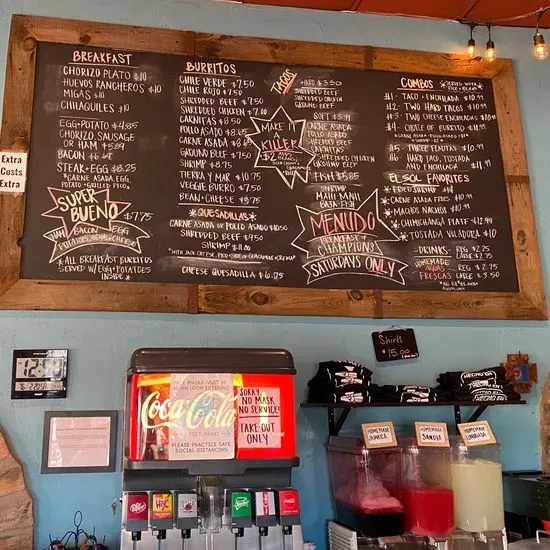 BREAKFAST
CHORIZO PLATO $10
HUEVOS RANCHEROS $10
MIGAS $10
CHILAQUILES $10
EGG+POTATO $4.85
CHORIZO, SAUSAGE
OR HAM $5.89
BACON $6.69
STEAK+EGG $8.25
CARNE ASADA, EGG
POTATO+GRILLED PICO
SUPER
BUENO $7.75
HAM BACON EGG
POTATOES, BEANS+CHEESE
*ALL BREAKFAST BURRITOS
SERVED W/EGG+POTATOES
INSIDE*
BURRITOS
CHILE VERDE $7.50
CHILE ROJO $7.50
SHREDDED BEEF $7.50
SHREDDED CHICKEN $7.00
CARNITAS $8.50
POLLO ASADO $8.65
CARNE ASADA $8.65
GROUND BEEF $7.50
SHRIMP $8.75
TIERRA Y MAR $10.75
VEGGIE BURRO $7.50
BEAN+CHEESE $5.75
*QUESADILLAS*
CARNE ASADA OR POLLO ASADO $10.50
SHREDDED BEEF $9.50
SHRIMP $11.00
*WITH JACK CHEESE, PICO+SIDE OF GUACAMOLE+CREMA*
CHEESE QUESADILLA $6.75
TACOS
HARD $3.50
SHREDDED BEEF
SHREDDED CHICKEN
GROUND BEEF
MAKE IT
A
KILLER
$2
SOFT $3.99
CARNE ASADA
POLLO ASADO
SHREDDED BEEF
CARNITAS
SHREDDED CHICKEN
GROUND BEEF
FISH $5.85
SHRIMP
MAHI MAHI
BAJA FISH
MENUDO
BREAKFAST OF
CHAMPIONS
SATURDAYS ONLY
COMBOS
*SERVED WITH
RICE+BEANS*
#1- TACO+ENCHILADA $10.99
#2- TWO HARD TACOS $10.99
#3- TWO CHEESE ENCHILADAS $10.99
#4- CHOICE OF BURRITO $11.99
#5- THREE FLAUTAS $10.99
#6- HARD TACO, TOSTADA
AND ENCHILADA $11.99
EL SOL FAVORITES
*FRIED SHRIMP $14
*CARNE ASADA FRIES $10.99
*MACHOS NACHOS $10.99
*CHIMICHANGA PLATE $12.99
*TOSTADA VALLADORA $10
DRINKS- REG. $2.25
LARGE $2.75
HOMEMADE
AGUAS
FRESCAS
REG $2.75
LARGE $3.50
Extra
Costs
Extra
Shirts
$15.00
12:59
Coca-Cola
FACE MASKS MUST BE
WORN UPON ENTERING
6 FEET APART
PLEASE PRACTICE
SOCIAL DISTANCING
SORRY
NO MASK
NO SERVICE!
TAKE OUT
ONLY
Dr Pepper
Sprite
Coca-Cola
HOMEMADE
JAMAICA
HOMEMADE
SANDIA
HOMEMADE
LIMONADA